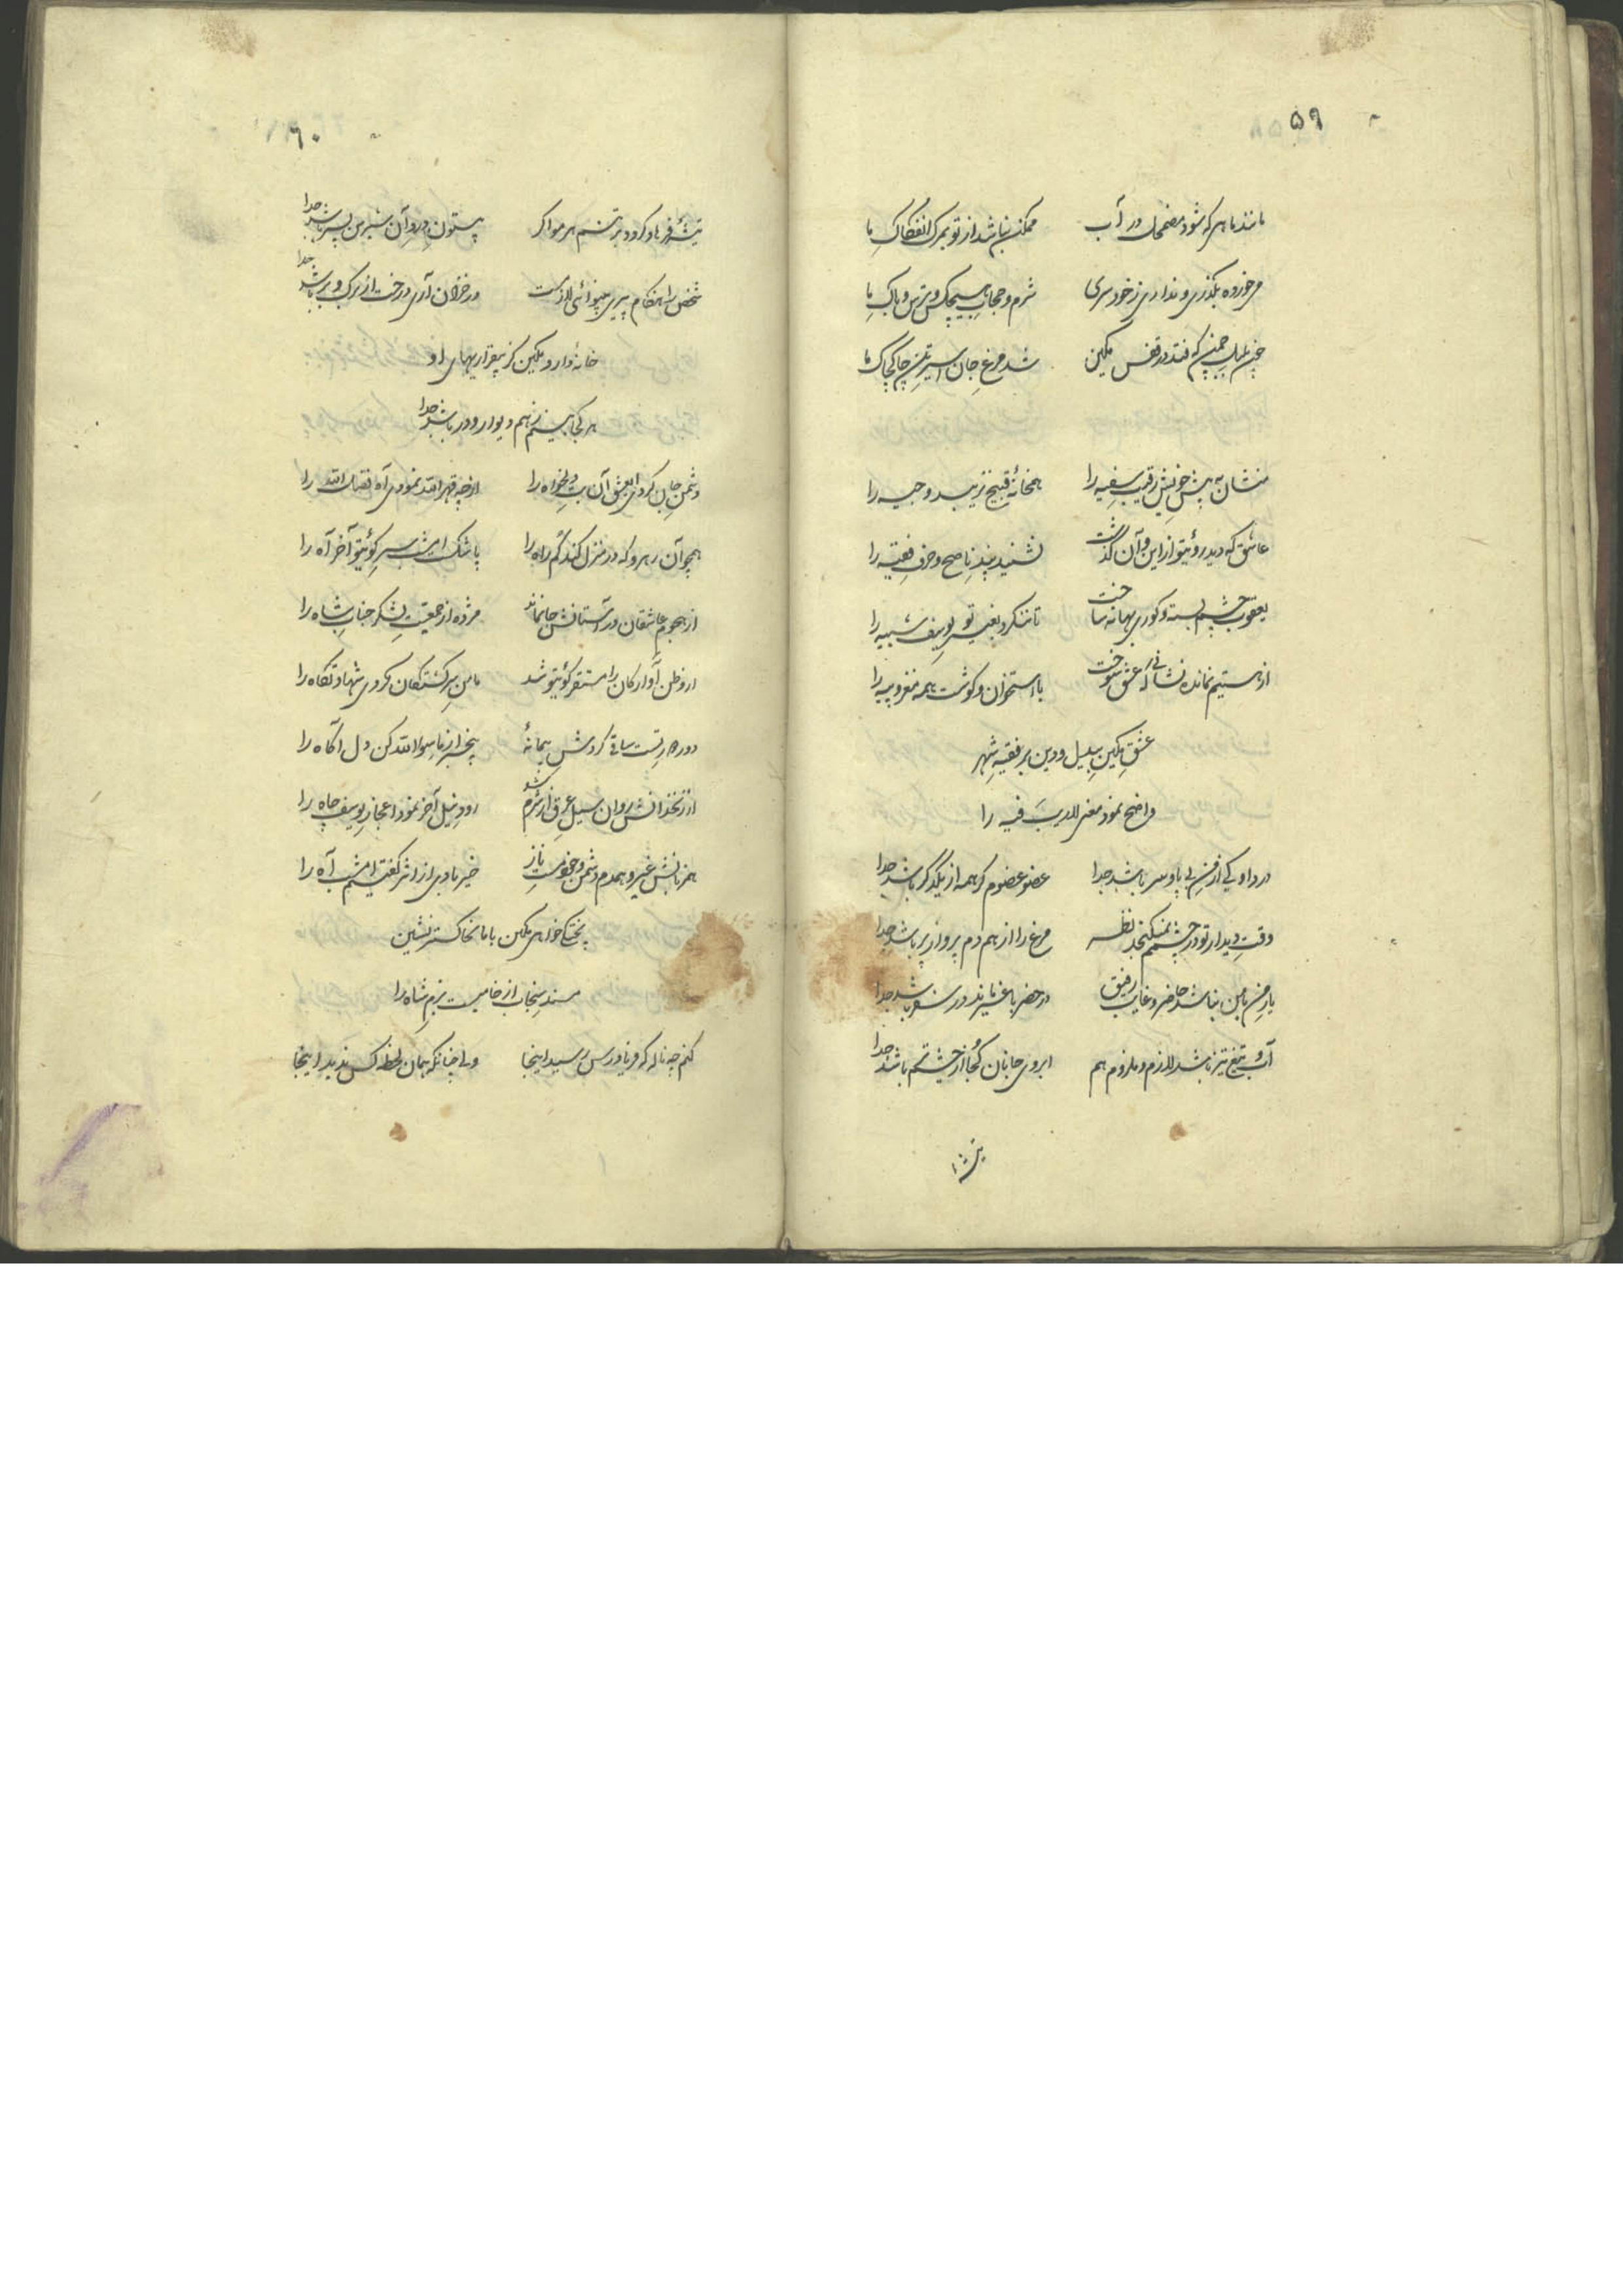 ۵۹
مانند ماهی که شود مضمحل در آب ممکن نباشد از تو بمرگ انفکاک ما
می خورده بگذری و نداری ز خودسری شرم و حجاب هیچکس و ترس و باک ما
چون بلبل چمن که فتد در قفس مکین شد مرغ جان اسیر تن چاکچاک ما
منشان به پیش خویش رقیب سفیه را همخانهٔ قبیح نزیبد وجیه را
عاشق که دید روئیتو از این و آن گذشت نشنید پند ناصح و حرف فقیه را
یعقوب چشم بسته و کوری بهانه ساخت تا ننگرد بغیر تو یوسف شبیه را
از هستیم نمانده نشانی که عشق سوخت با استخوان و گوشت همه مغز و پیه را
عشق مکین بیدل و دین بر فقیه شهر
واضح نمود معنی لاریب فیه را
درد او کی از من بی پا و سر باشد جدا عضو عضوم گر همه از یکدگر باشد جدا
وقت دیدار تو در چشمم نمیگنجد نظر مرغ را از هم دم پرواز پر باشد جدا
یار من با من نباشد حاضر و غایب رفیق در حضر با غیر ماند در سفر باشد جدا
آب و تیغ تیز باشد لازم و ملزوم هم ابروی جانان کجا از چشم تر باشد جدا
تیشه
۶۰
تیشهٔ فرهاد گردد بر تنم هر مو اگر بیستون درد آن شیرین پسر باشد جدا
شخص را هنگام پیری بینوائی لازمست در خزان آری درخت از برگ و بر باشد جدا
خانهٔ دارد مکین کز بیقراریهای او
هر کجا بینم ز هم دیوار و در باشد جدا
دشمن جان کردی ایعشق آن بت دلخواه را از چه قهر الله نمودی آه فضل الله را
همچو آن رهرو که در منزل کند گم راه را پا شکست امشب سر کوئیتو آخر آه را
از هجوم عاشقان در آستانش جا نماند مژده از جمعیت لشکر جناب شاه را
از وطن آوارگان را مستقر کوئیتو شد مامن سرگشتگان کردی شهادتگاه را
دور ساقی گردش پیمانهٔ بیخبر از ماسوا الله کن دل آگاه را
از زنخدانش روان سیل عرق از شرم شد رود نیل آخر نمود اعجاز یوسف چاه را
همزبانش غیر و همدم دشمن و خو مست ناز خیربادی از اثر گفتیم امشب آه را
پختگی خواهی مکین با ما بخاکستر نشین
مسند سنجاب از خامیست بزم شاه را
کنم چه ناله که فریادرس رسید اینجا ولی چنانکه همان لحظه کس ندید اینجا